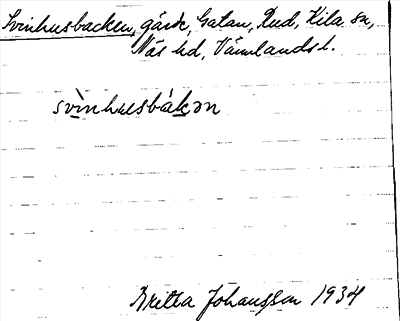 Svinhusbacken, gård, Gatan, Rud, Kila sn,
Näs hd, Värmlands l.
svinhusbákən
Britta Johansson 1934